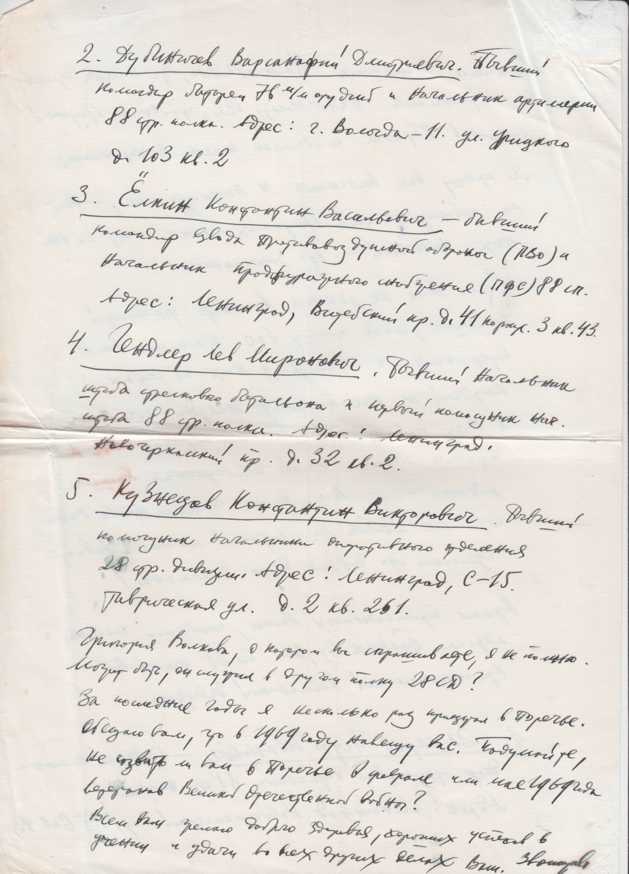 2. Дубиничев Варсанофий Дмитриевич. Бывший
командир батареи 76 м/м орудий и начальник артиллерии
88 стр. полка. Адрес: г. Вологда-11. ул. Урицкого
д. 103 кв. 2
3. Ёлкин Константин Васильевич — бывший
командир взвода противовоздушной обороны (ПВО) и
начальник продфуражного снабжения (ПФС) 88 сп.
Адрес: Ленинград, Витебский пр. д. 41 корпус. 3 кв. 43.
4. Гендлер Лев Миронович. Бывший начальник
штаба стрелкового батальона и первый помощник нач.
штаба 88 стр. полка. Адрес: Ленинград.
Новочеркасский пр. д. 32 кв. 2.
5. Кузнецов Константин Викторович. Бывший
помощник начальника оперативного отделения
28 стр. дивизии. Адрес: Ленинград, С-15.
Таврическая ул. д. 2 кв. 261.
Григория Волкова, о котором вы спрашиваете, я не помню.
Может быть, он служил в другом полку 28 СД?
За последние годы я несколько раз приезжал в Поречье.
Обещаю вам, что в 1969 году навещу вас. Подумайте,
не созвать ли вам в Поречье в феврале или мае 1969 года
ветеранов Великой Отечественной войны?
Всем вам желаю доброго здоровья, хороших успехов в
учении и удачи во всех других делах. Ваш